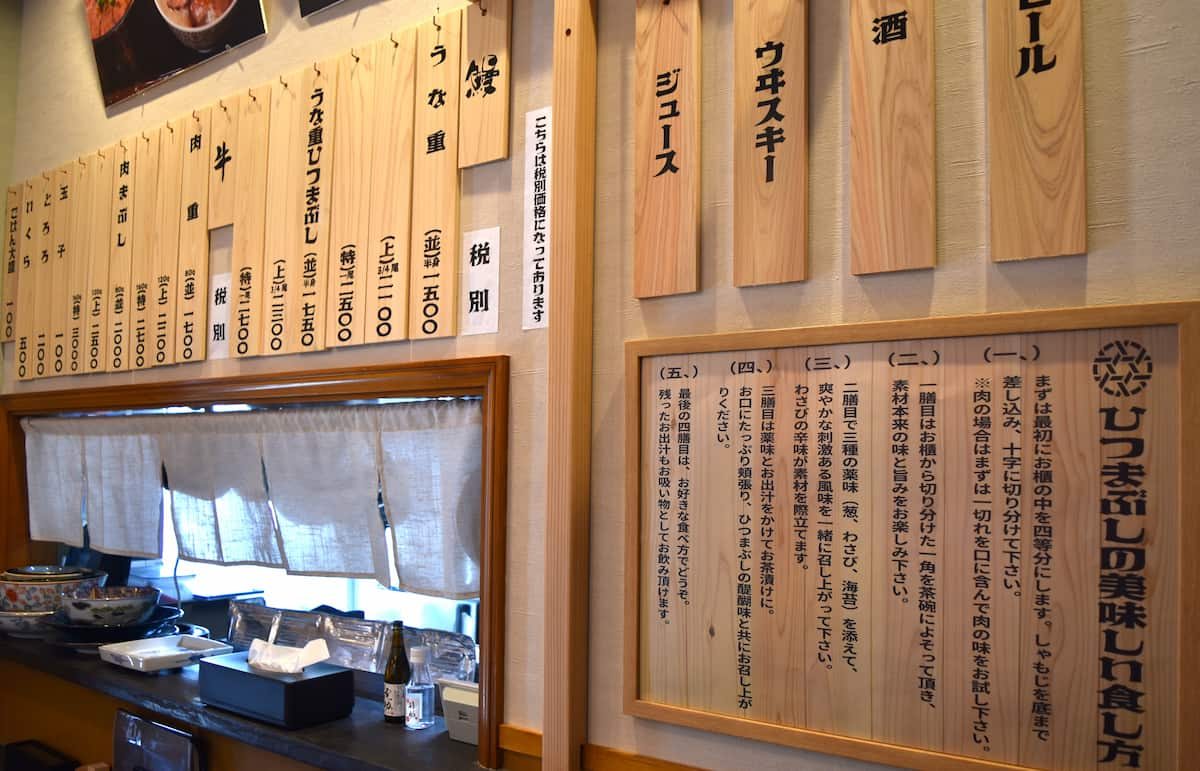 ビール
酒
ウヰスキー
ジュース
こちらは税別価格になっております
鰻
税別
うな重
(並)半身 一五〇〇
(上)3/4尾 二一〇〇
(特)一尾 二五〇〇
うな重ひつまぶし
(並)半身 一七五〇
(上)3/4尾 二三〇〇
(特)一尾 二七〇〇
牛
税別
肉重
80g (並)一七〇〇
120g (上)二二〇〇
160g (特)二七〇〇
肉まぶし
80g (並)二〇〇〇
120g (上)二五〇〇
160g (特)三〇〇〇
玉子 一〇〇
とろろ 二〇〇
いくら 五〇〇
ごはん大盛 一〇〇
ひつまぶしの美味しい食し方
(一、)
まずは最初にお櫃の中を四等分にします。しゃもじを底まで
差し込み、十字に切り分けて下さい。
※肉の場合はまずは一切れを口に含んで肉の味をお試し下さい。
(二、)
一膳目はお櫃から切り分けた一角を茶碗によそって頂き、
素材本来の味と旨みをお楽しみ下さい。
(三、)
二膳目で三種の薬味(葱、わさび、海苔)を添えて、
爽やかな刺激ある風味を一緒に召し上がって下さい。
わさびの辛味が素材を際立てます。
(四、)
三膳目は薬味とお出汁をかけてお茶漬けに。
お口にたっぷり頬張り、ひつまぶしの醍醐味と共にお召し上が
りください。
(五、)
最後の四膳目は、お好きな食べ方でどうぞ。
残ったお出汁もお吸い物としてお飲み頂けます。